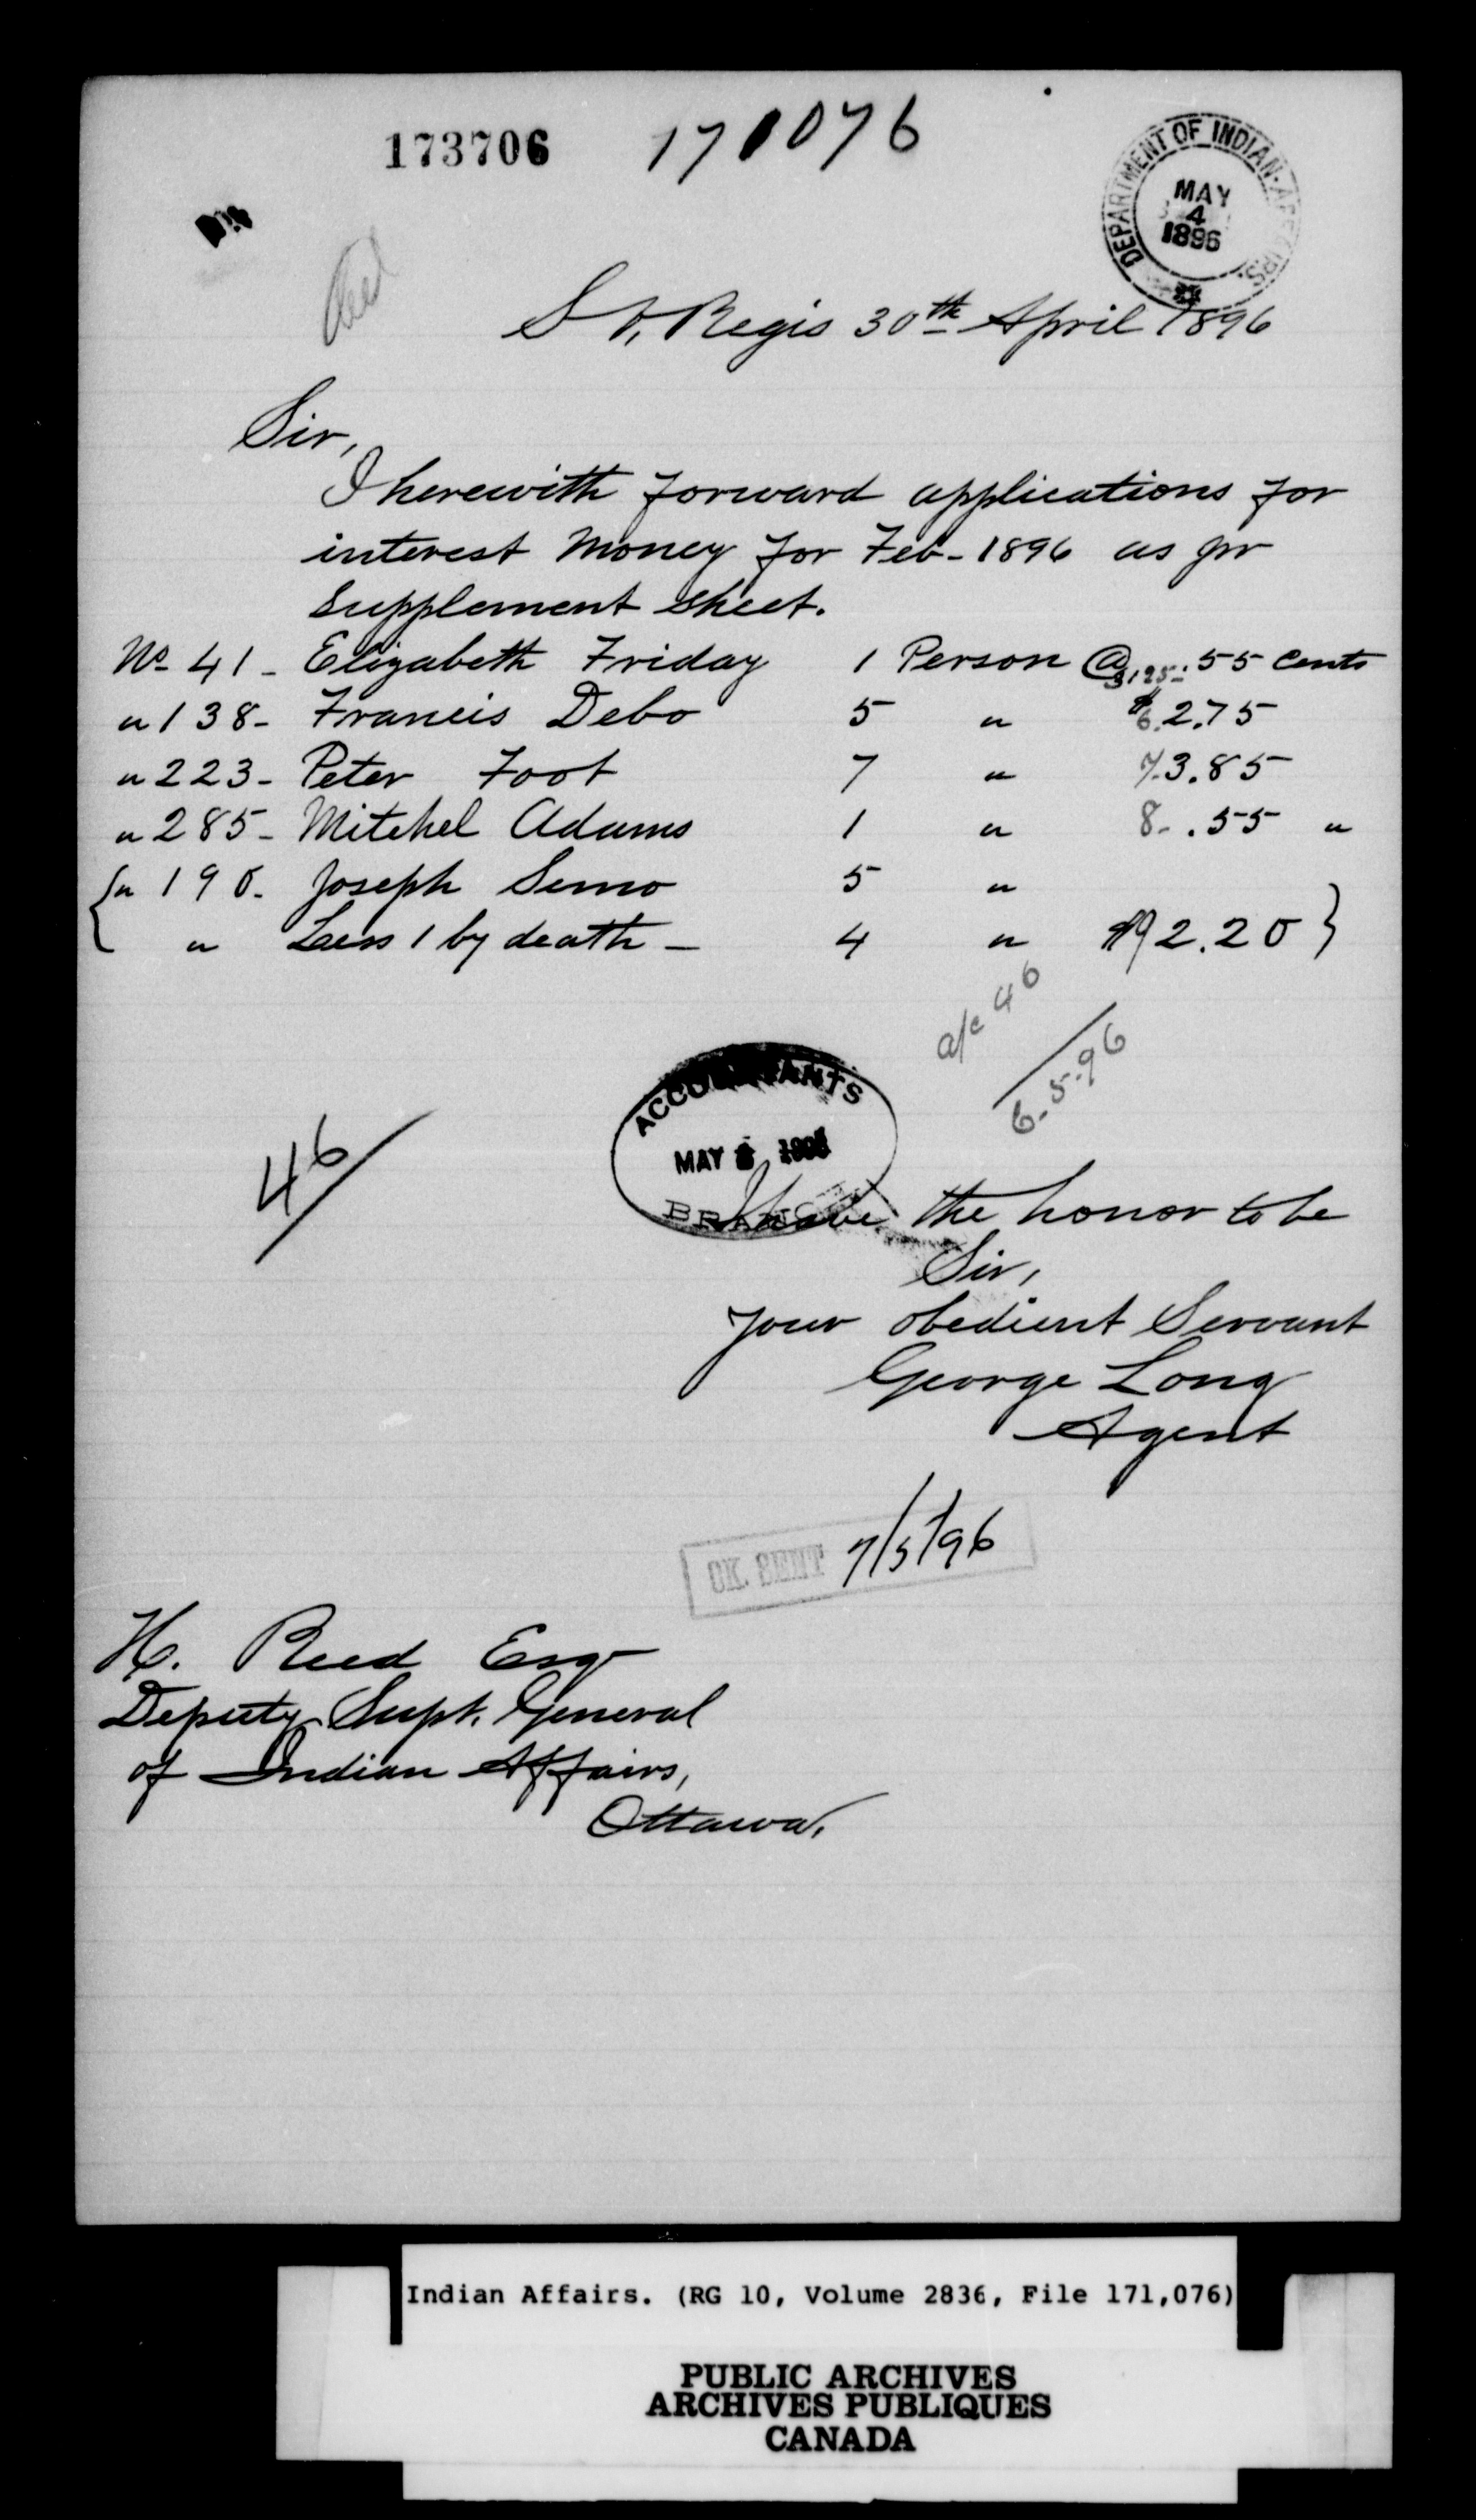 173706 171076
DEPARTMENT OF INDIAN AFFAIRS.
MAY
4
1896
St, Regis 30th April 1896
Sir,
I herewith forward applications for
interest money for Feb - 1896 as pr
Supplement sheet.
No 41 - Elizabeth Friday 1 Person @ 3125 - .55 cents
" 138 - Francis Debo 5 " $ 6. 2.75
" 223 - Peter Foot 7 " 7. 3.85
" 285 - Mitchel Adams 1 " 8 - .55 "
{ " 190 - Joseph Semo 5 "
" Less 1 by death - 4 " $ 9 2.20 }
a/c 46
6-5-96
ACCOUNTANTS
MAY
BRANCH
46
I have the honor to be
Sir,
your obedient Servant
George Long
Agent
CK. SENT 7/5/96
H. Reed Esqr
Deputy Supt. General
of Indian Affairs,
Ottawa,
Indian Affairs. (RG 10, Volume 2836, File 171,076)
PUBLIC ARCHIVES
ARCHIVES PUBLIQUES
CANADA